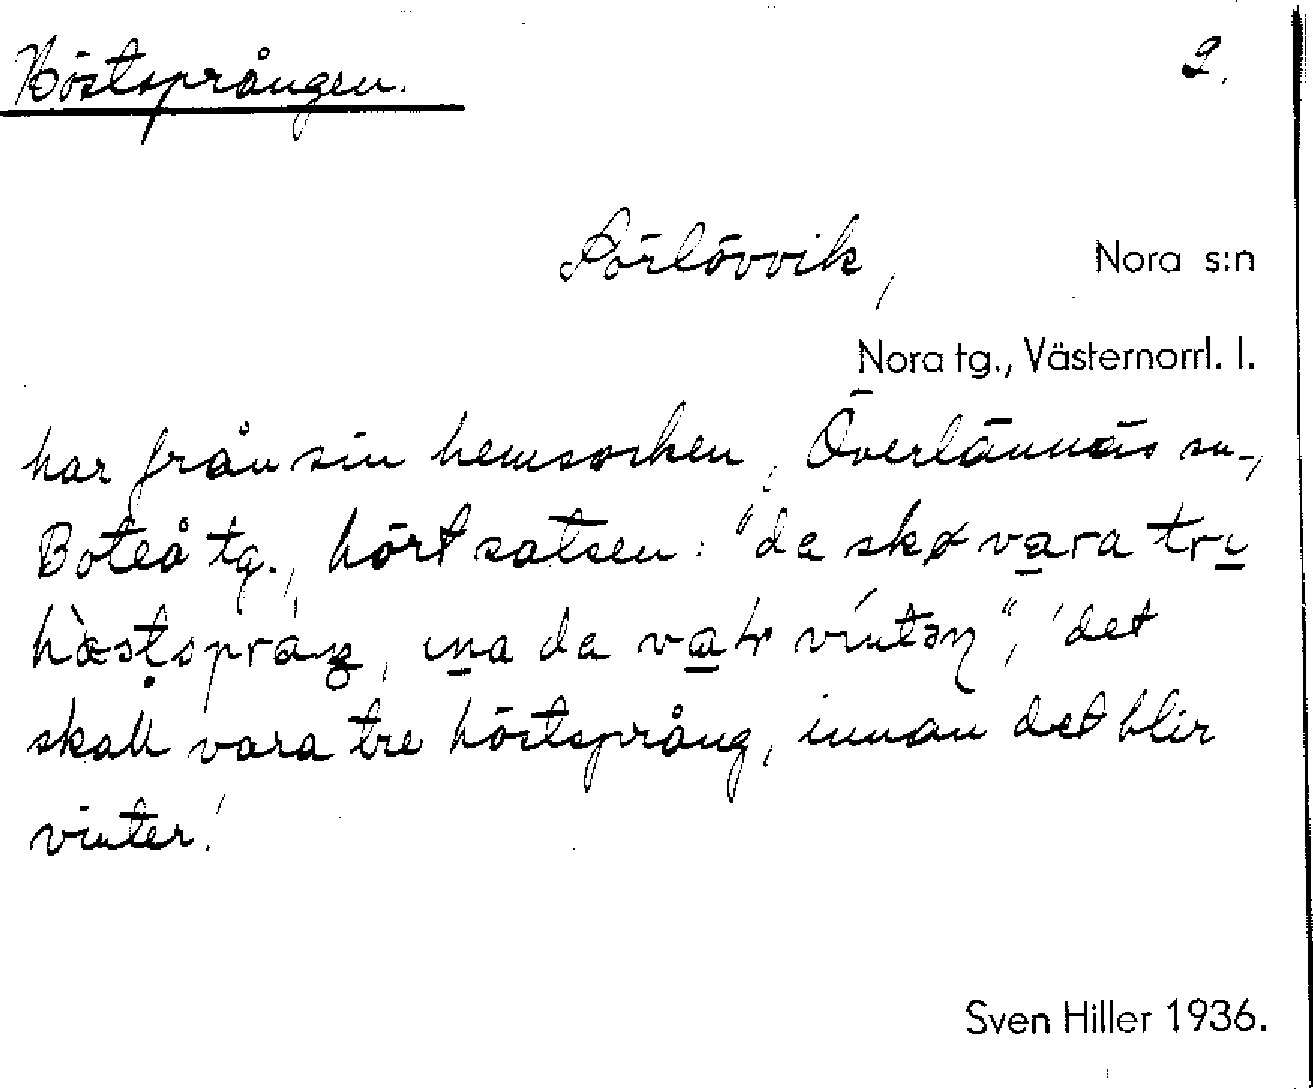 Höstsprången. 2.
Sörlövvik, Nora s:n
Nora tg., Västernorrl. l.
har från sin hemsocken, Överlännäs sn.,
Boteå tg., hört satsen: "da skø vara tri
ha da vintən", 'det
skall vara tre höstsprång, innan det blir
vinter.'
Sven Hiller 1936.